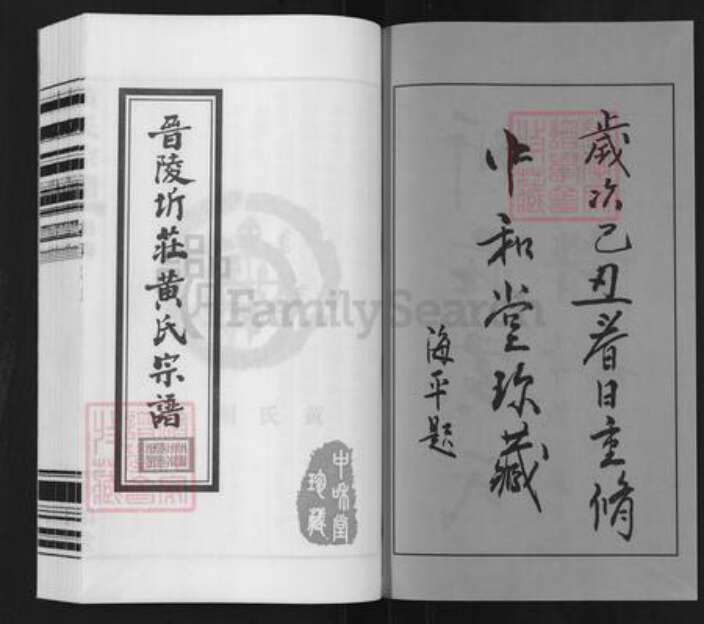 歲次己丑春日重脩
中和堂珍藏
海平題
晉陵圻莊黃氏宗譜
中和堂
珍藏
FamilySearch